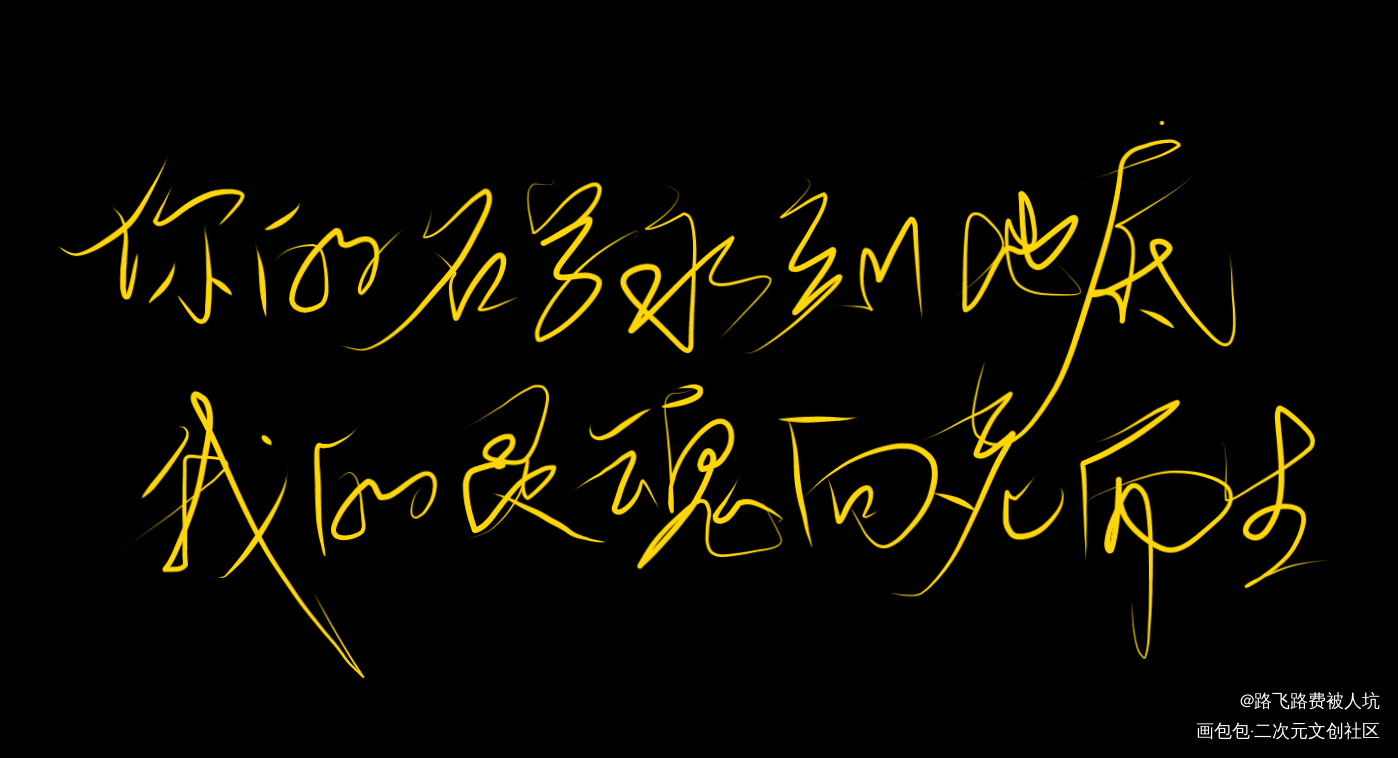 你的名字永刻地底
我的灵魂向光而生
@路飞路费被人坑
画包包·二次元文创社区